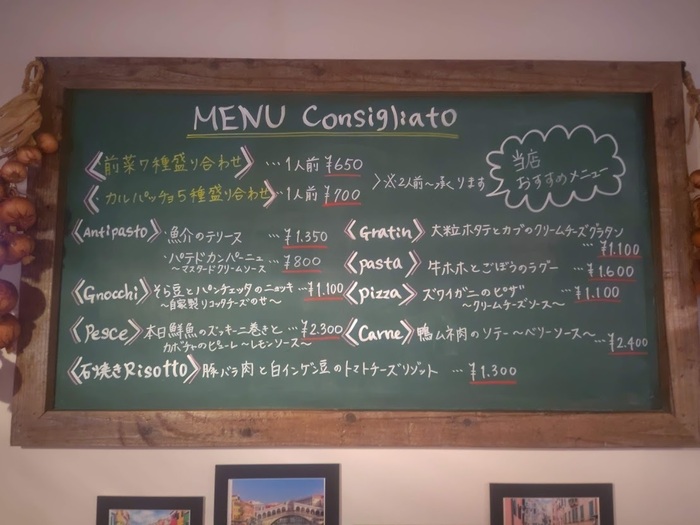 MENU Consigliato
《前菜7種盛り合わせ》…1人前 ¥650
《カルパッチョ5種盛り合わせ》…1人前 ¥700
※2人前〜承ります
当店
おすすめメニュー
《Antipasto》・魚介のテリーヌ …¥1.350
・パテドカンパーニュ …¥800
〜マスタードクリームソース
《Gnocchi》そら豆とパンチェッタのニョッキ …¥1.100
〜自家製リコッタチーズのせ〜
《Pesce》本日鮮魚のズッキーニ巻きと …¥2.300
カボチャのピューレ〜レモンソース〜
《石焼きRisotto》豚バラ肉と白インゲン豆のトマトチーズリゾット …¥1.300
《Gratin》大粒ホタテとカブのクリームチーズグラタン
…¥1.100
《pasta》牛ホホとごぼうのラグー …¥1.600
《pizza》ズワイガニのピザ …¥1.100
〜クリームチーズソース〜
《Carne》鴨ムネ肉のソテー〜ベリーソース〜
…¥2.400